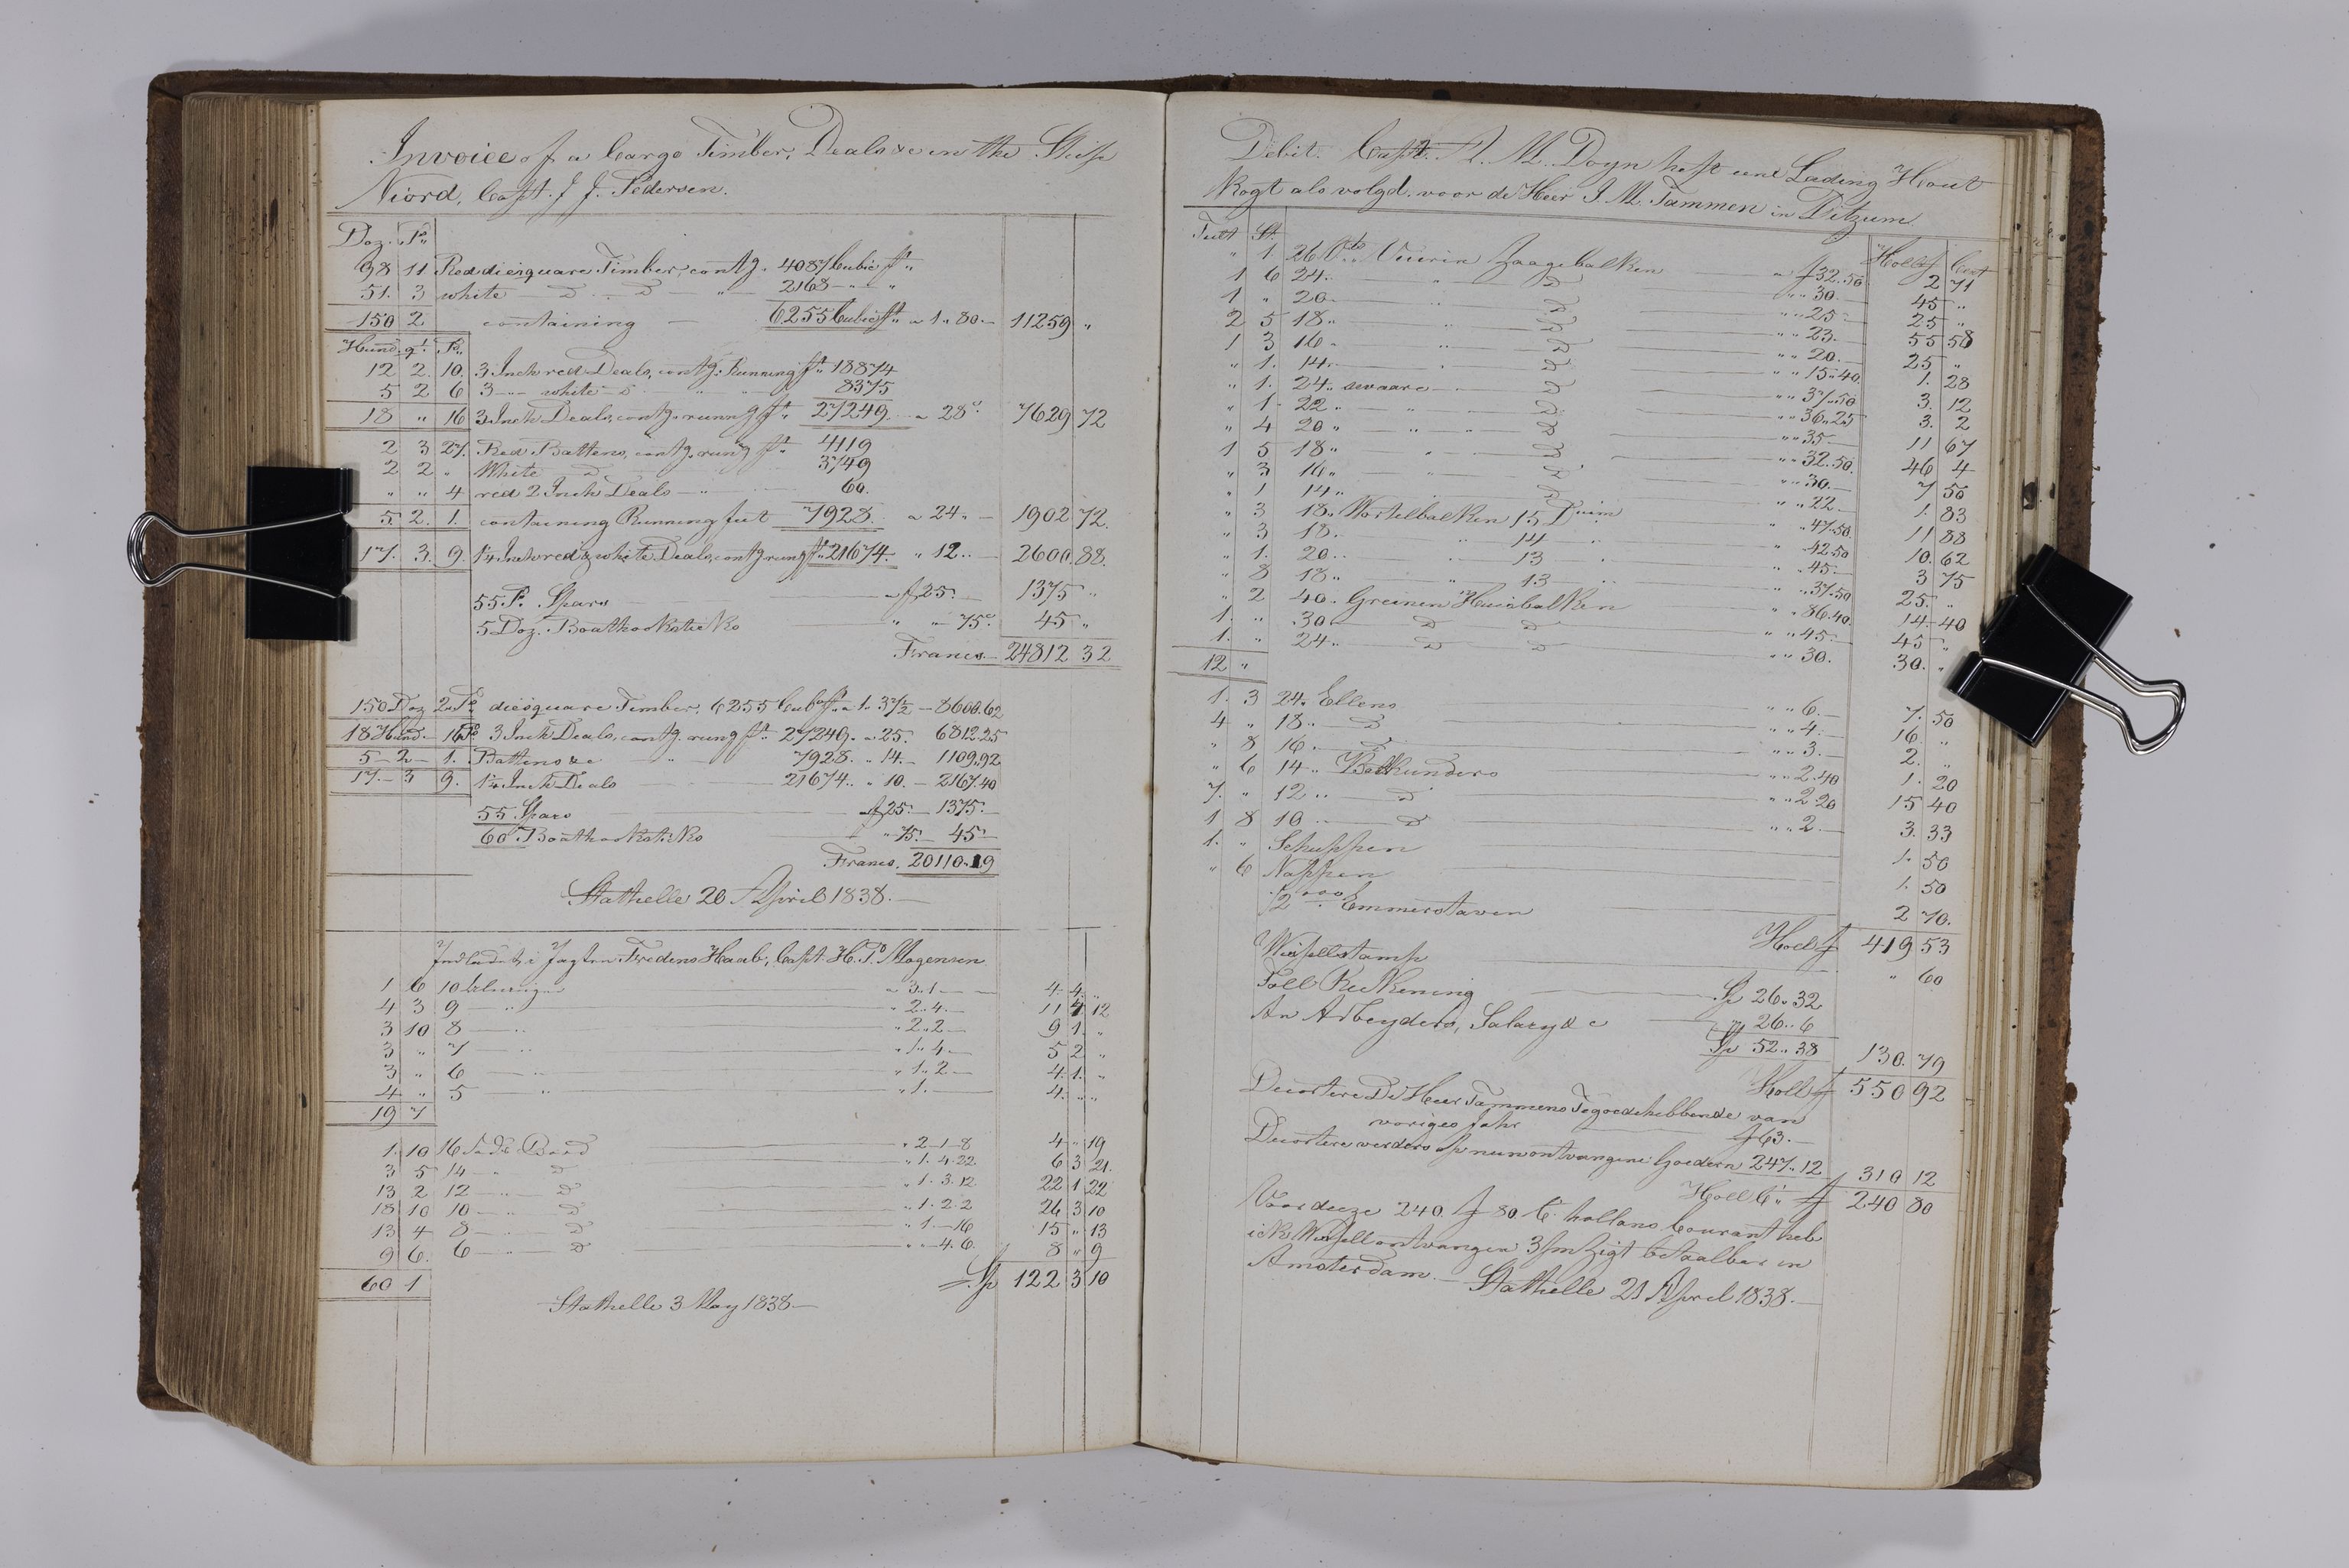 Invoice of a Cargo Timber, Deals &c in the Ship
Niord, Capt. J. J. Pedersen.
Doz. Ps.
98 11 Red diesquare Timber, contg. 4087 Cubic ft.
51. 3 white — D — D — " 2168 — " — "
150 2 containing — 6255 Cubic ft. a 1. 80 — 11259 "
Hund. qt. Ps.
12 2. 10. 3 Inch red Deals, contg. Running ft. 18874
5 2 6 3 — " — white — D — " " " 8375
18 " 16 3 Inch Deals, contg. runng ft. 27249 a 28c. 7629 72
2 3 27. Red Battens, contg. rung ft. 4119
2 2 " White — D — 3749
" " 4 red 2 Inch Deals — " — 60.
5 2. 1. containing Running feet 7928. a 24 " — 1902 72.
17. 3. 9. 1¼ Inch red & white Deals, contg rung ft. 21674. " 12 .. — 2600. 88.
55 P. Spars — a f 25. — 1375 "
5 Doz. Boathooksticks — " — 75c. 45 "
Francs — 24812 32
150 Doz 2 Ps. diesquare Timber, 6255 Cub ft. a 1. 37½ — 8600.62
18 Hund. — 16 Ps. 3 Inch Deals, contg. rung ft. 27249. a 25. 6812.25
5 — 2 — 1. Battens &c " 7928. " 14. — 1109.92
17. — 3 9. 1¼ Inch Deals — 21674. " 10. — 2167.40
55 Spars — a f 25. — 1375. —
60 Boathooksticks " 75. — 45. —
Francs. 20110.19
Stathelle 20 April 1838. —
Indladet i Jagten Fredens Haab, Capt. H. P. Mogensen
1 6 10 " 3. 1 — 4. 4. "
4 3 9 — " — " 2. 4. — 11 4 12
3 10 8 — " — " 2. 2 — 9 1. "
3 " 7 — " — " 1. 4 — 5 2 "
3 " 6 — " — " 1. 2. — 4. 1. "
4 " 5 — " — " 1. — 4. " "
19 7
1. 10 16 Fods Bord — " 2 — 1 — 8 4 " 19
3 5 14 — " D — " 1. 4. 22 6 3 21.
13 2 12 — " — D — " 1. 3. 12 22 1 22
15 10 10 — " — D — " 1. 2. 2 26 3 10
13 4 8 — " — D — " 1 — " — 16 15 " 13
9 6. 6 — " — D — " " — 4. 6. 8 " 9
60 1 Sp 122 3 10
Stathelle 3 May 1838 —
Debit. Capt. F. M. Doyn heft eene Lading Hout
kogt als volgd. voor de Heer J. M. Tammen in Ditzum
Tult St. Holl f Cent
" 1. 26 Vts Vuurin Zaagebalken a f 32.50 2 71
1 6 24. " D " " 30. — 45 "
1 " 20 .. " D " " 25 — 25 "
2 5 18 .. " D " " 23. — 55 58
1 3 16 .. " D " " 20. — 25 "
" 1. 14 .. " D " " 15.40. 1. 28
" 1. 24 .. sevaare — D " " 37.50 3. 12
" 1. 22 .. " D " " 36.25 3. 2
" 4 20 .. " D " " 35 — 11 67
1 5 18 .. " D " " 32.50. 46 4
" 3 16 .. " D " " 30. — 7 50
" 1 14 .. D " " 22. — 1. 83
" 3 18 .. Wortelbalken 15 Duim " " 47.50. 11 88
" 3 18. " 14 " " " 42.50 10. 62
" 1. 20 .. " 13 " " " 45. — 3 75
" 8 18 .. " 13 " " " 37.50 25. "
" 2 40 .. Greinen Huisbalken " " 86.40. 14. 40
1. " 30 D D " " 45. — 45 "
1. " 24 .. D D " " 30. 30. "
12 "
1. 3 24. Ellens " " 6. — 7. 50
4 " 18 .. D " " 4. — 16. "
" 8 16 .. D " " 3. — 2. "
" 6 14 .. Balkunders " " 2.40 1. 20
7. " 12 .. D " " 2.20 15 40
1 8 10 .. D " " 2. — 3. 33
1. " Schuppen 1. 50
" 6 Nappen 1. 50
Emmerstaven 2 70.
Holl f 419 53
Wissellstamp " 60
Toll Rekening — Sp 26. 32
An Arbeyders, Salary & c — " 26. 6
Sp 52. 38 130. 79
Holl f 550 92
Decortere De Heer Tammens Tegoedehebbende van
voriges Jahr — f 63. —
Decortere verders op nun ontvangene Goedern 247. 12 310 12
Holl Ct. f 240 80
Voor deeze 240. f 80 C. hollans Courant heb
ick Wissell ontvangen 3/m Zigt betaalbar in
Amsterdam. — Stathelle 21 April 1838. —